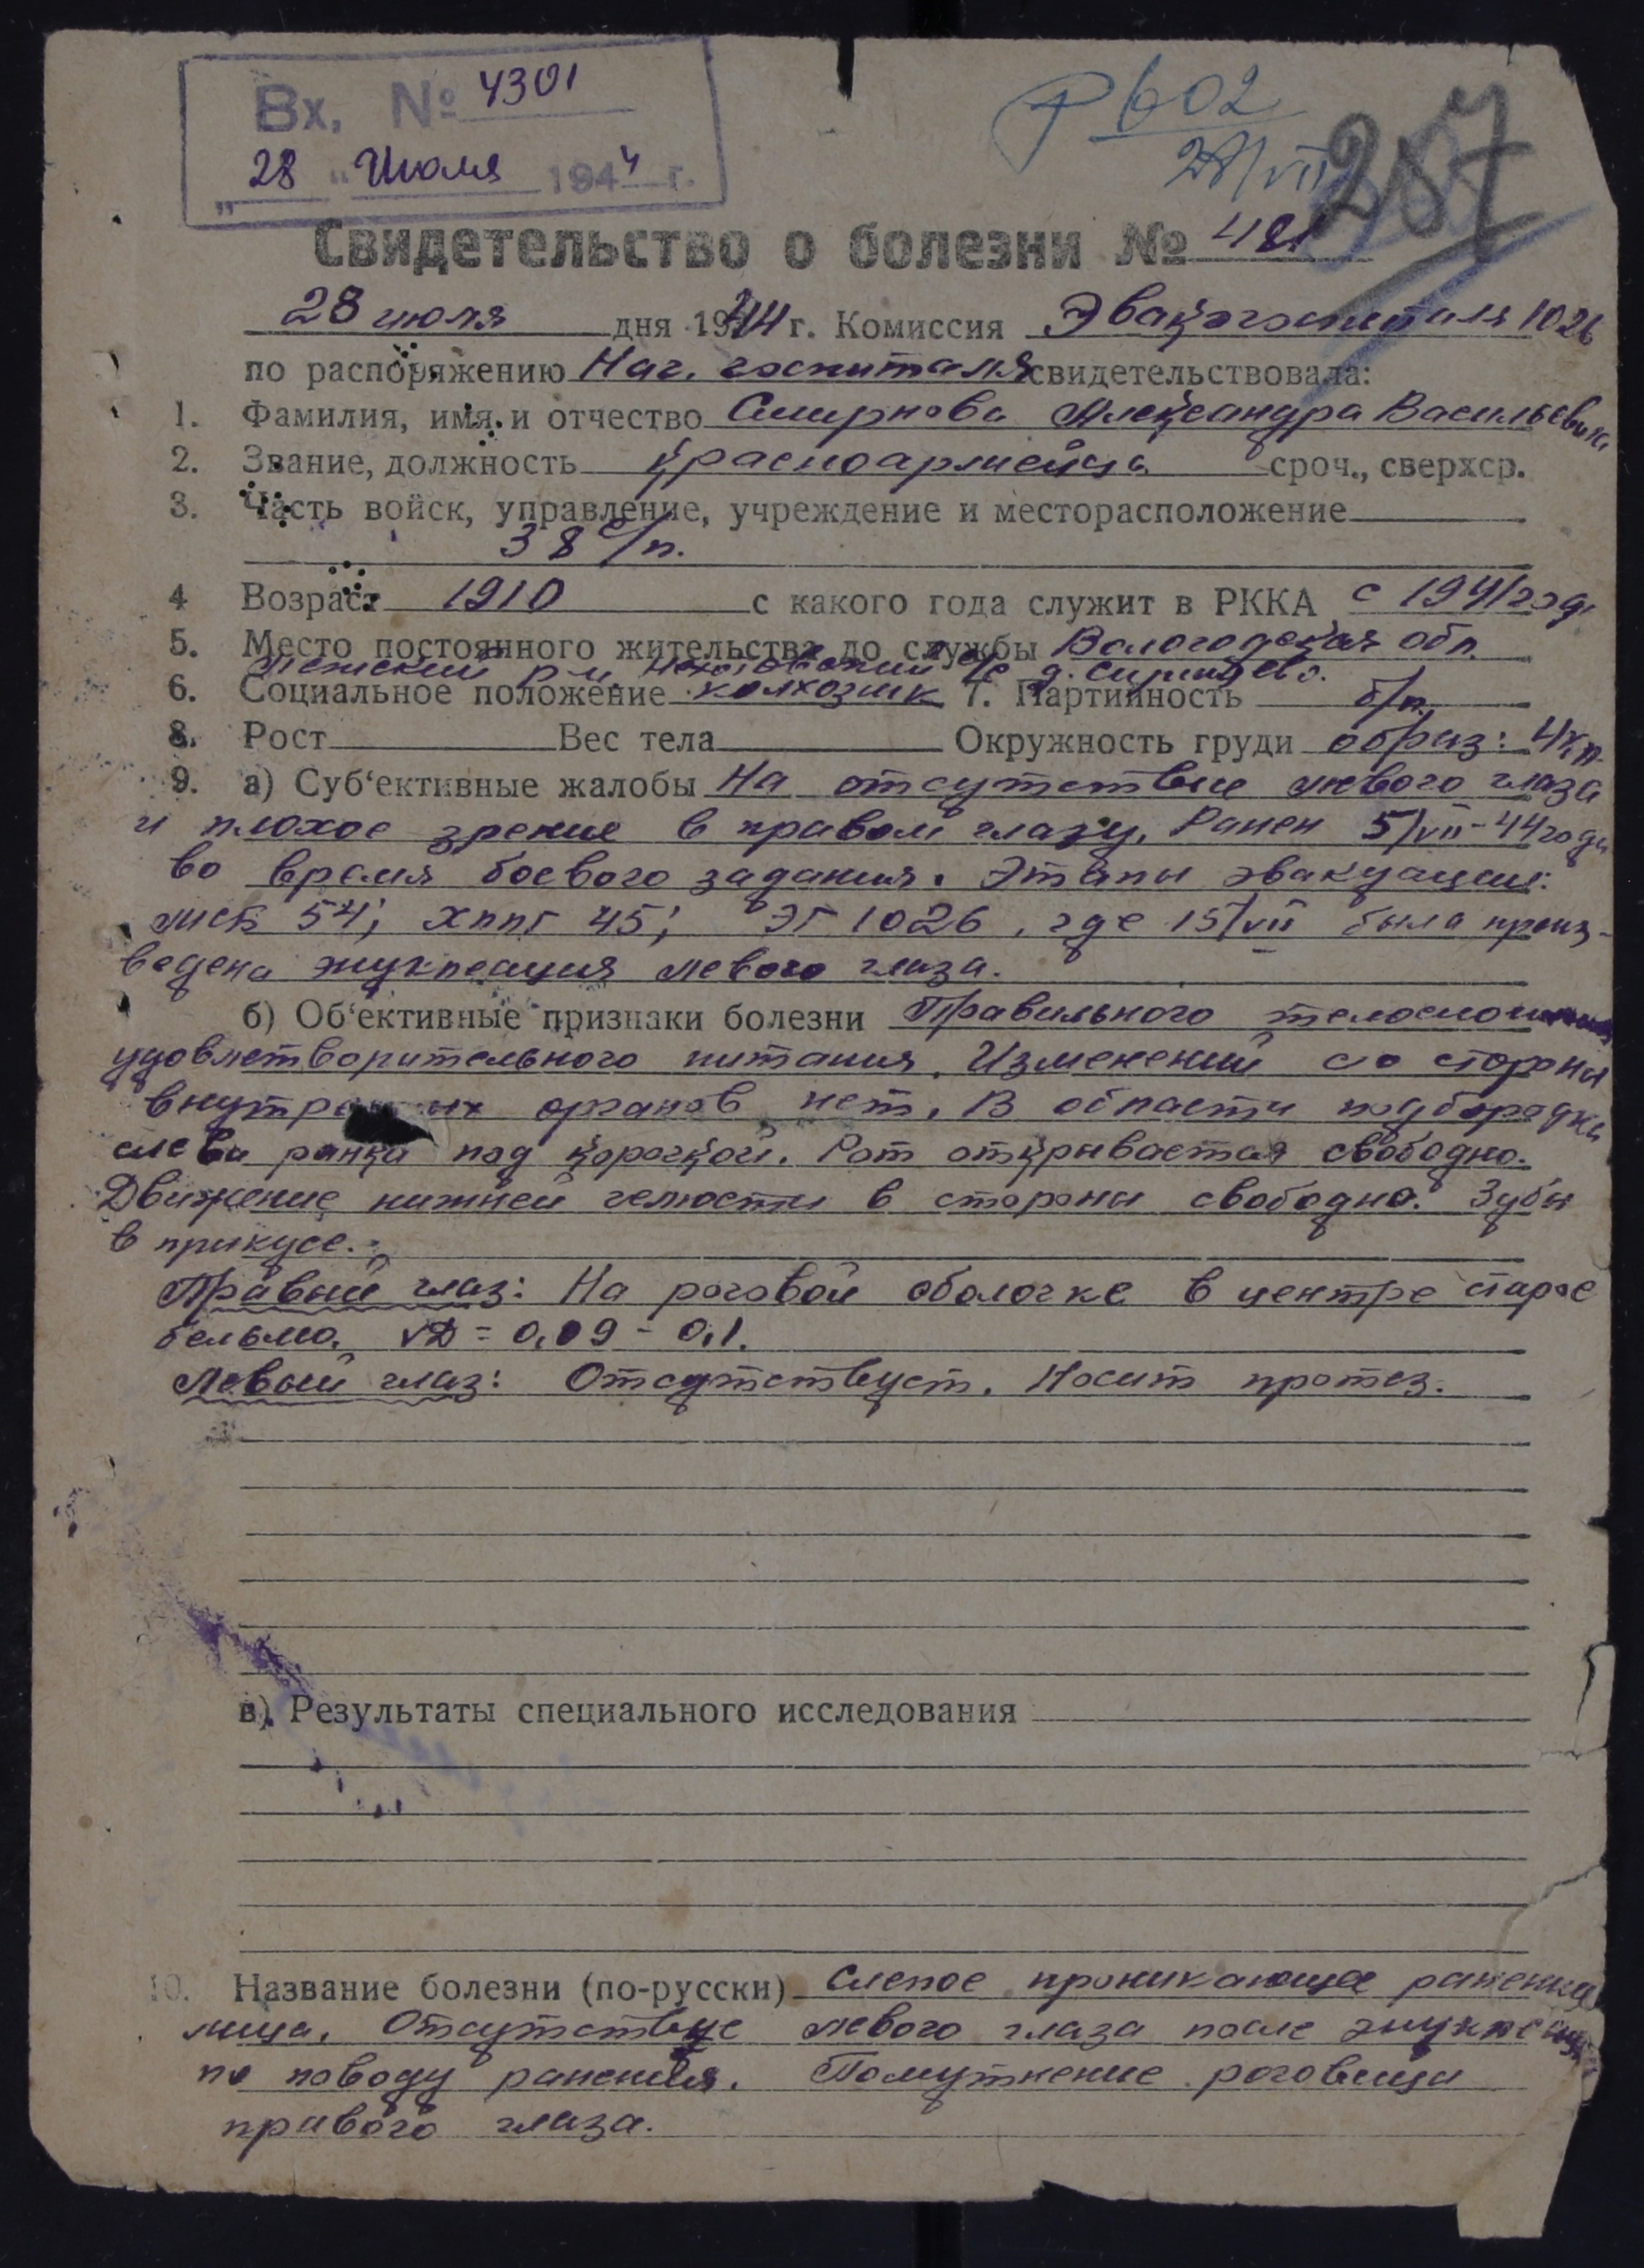 Вх. № 4301
28 " Июля 1944 г.
602
28/VII
287
Свидетельство о болезни № 481
28 июля дня 1944 г. Комиссия Эвакогоспиталя 1026
по распоряжению Нач. госпиталя свидетельствовала:
1. Фамилия, имя и отчество Смирнова Александра Васильевича
2. Звание, должность красноармейца сроч., сверхср.
3. Часть войск, управление, учреждение и месторасположение
38 с/п.
4 Возраст 1910 с какого года служит в РККА с 1941 года
5. Место постоянного жительства до службы Вологодская обл.
р-н, с/с д.
6. Социальное положение колхозник 7. Партийность б/п.
8. Рост Вес тела Окружность груди образ: 4 кл.
9. а) Суб‘ективные жалобы На отсутствие левого глаза
и плохое зрение в правом глазу. Ранен 5/VII-44 года
во время боевого задания. Этапы эвакуации:
МСБ 54; ХППГ 45; ЭГ 1026, где 15/VII была произ-
ведена энуклеация левого глаза.
б) Об‘ективные признаки болезни Правильного телосложения
удовлетворительного питания. Изменений со стороны
органов нет. В области подбородка
слева ранка под корочкой. Рот открывается свободно.
Движение нижней челюсти в стороны свободно. Зубы
в прикусе.
Правый глаз: На роговой оболочке в центре старое
бельмо. VД = 0,09 - 0,1.
Левый глаз: Отсутствует. Носит протез.
в). Результаты специального исследования
10. Название болезни (по-русски) Слепое проникающее ранение
лица. Отсутствие левого глаза после энуклеации
по поводу ранения. Помутнение роговицы
правого глаза.